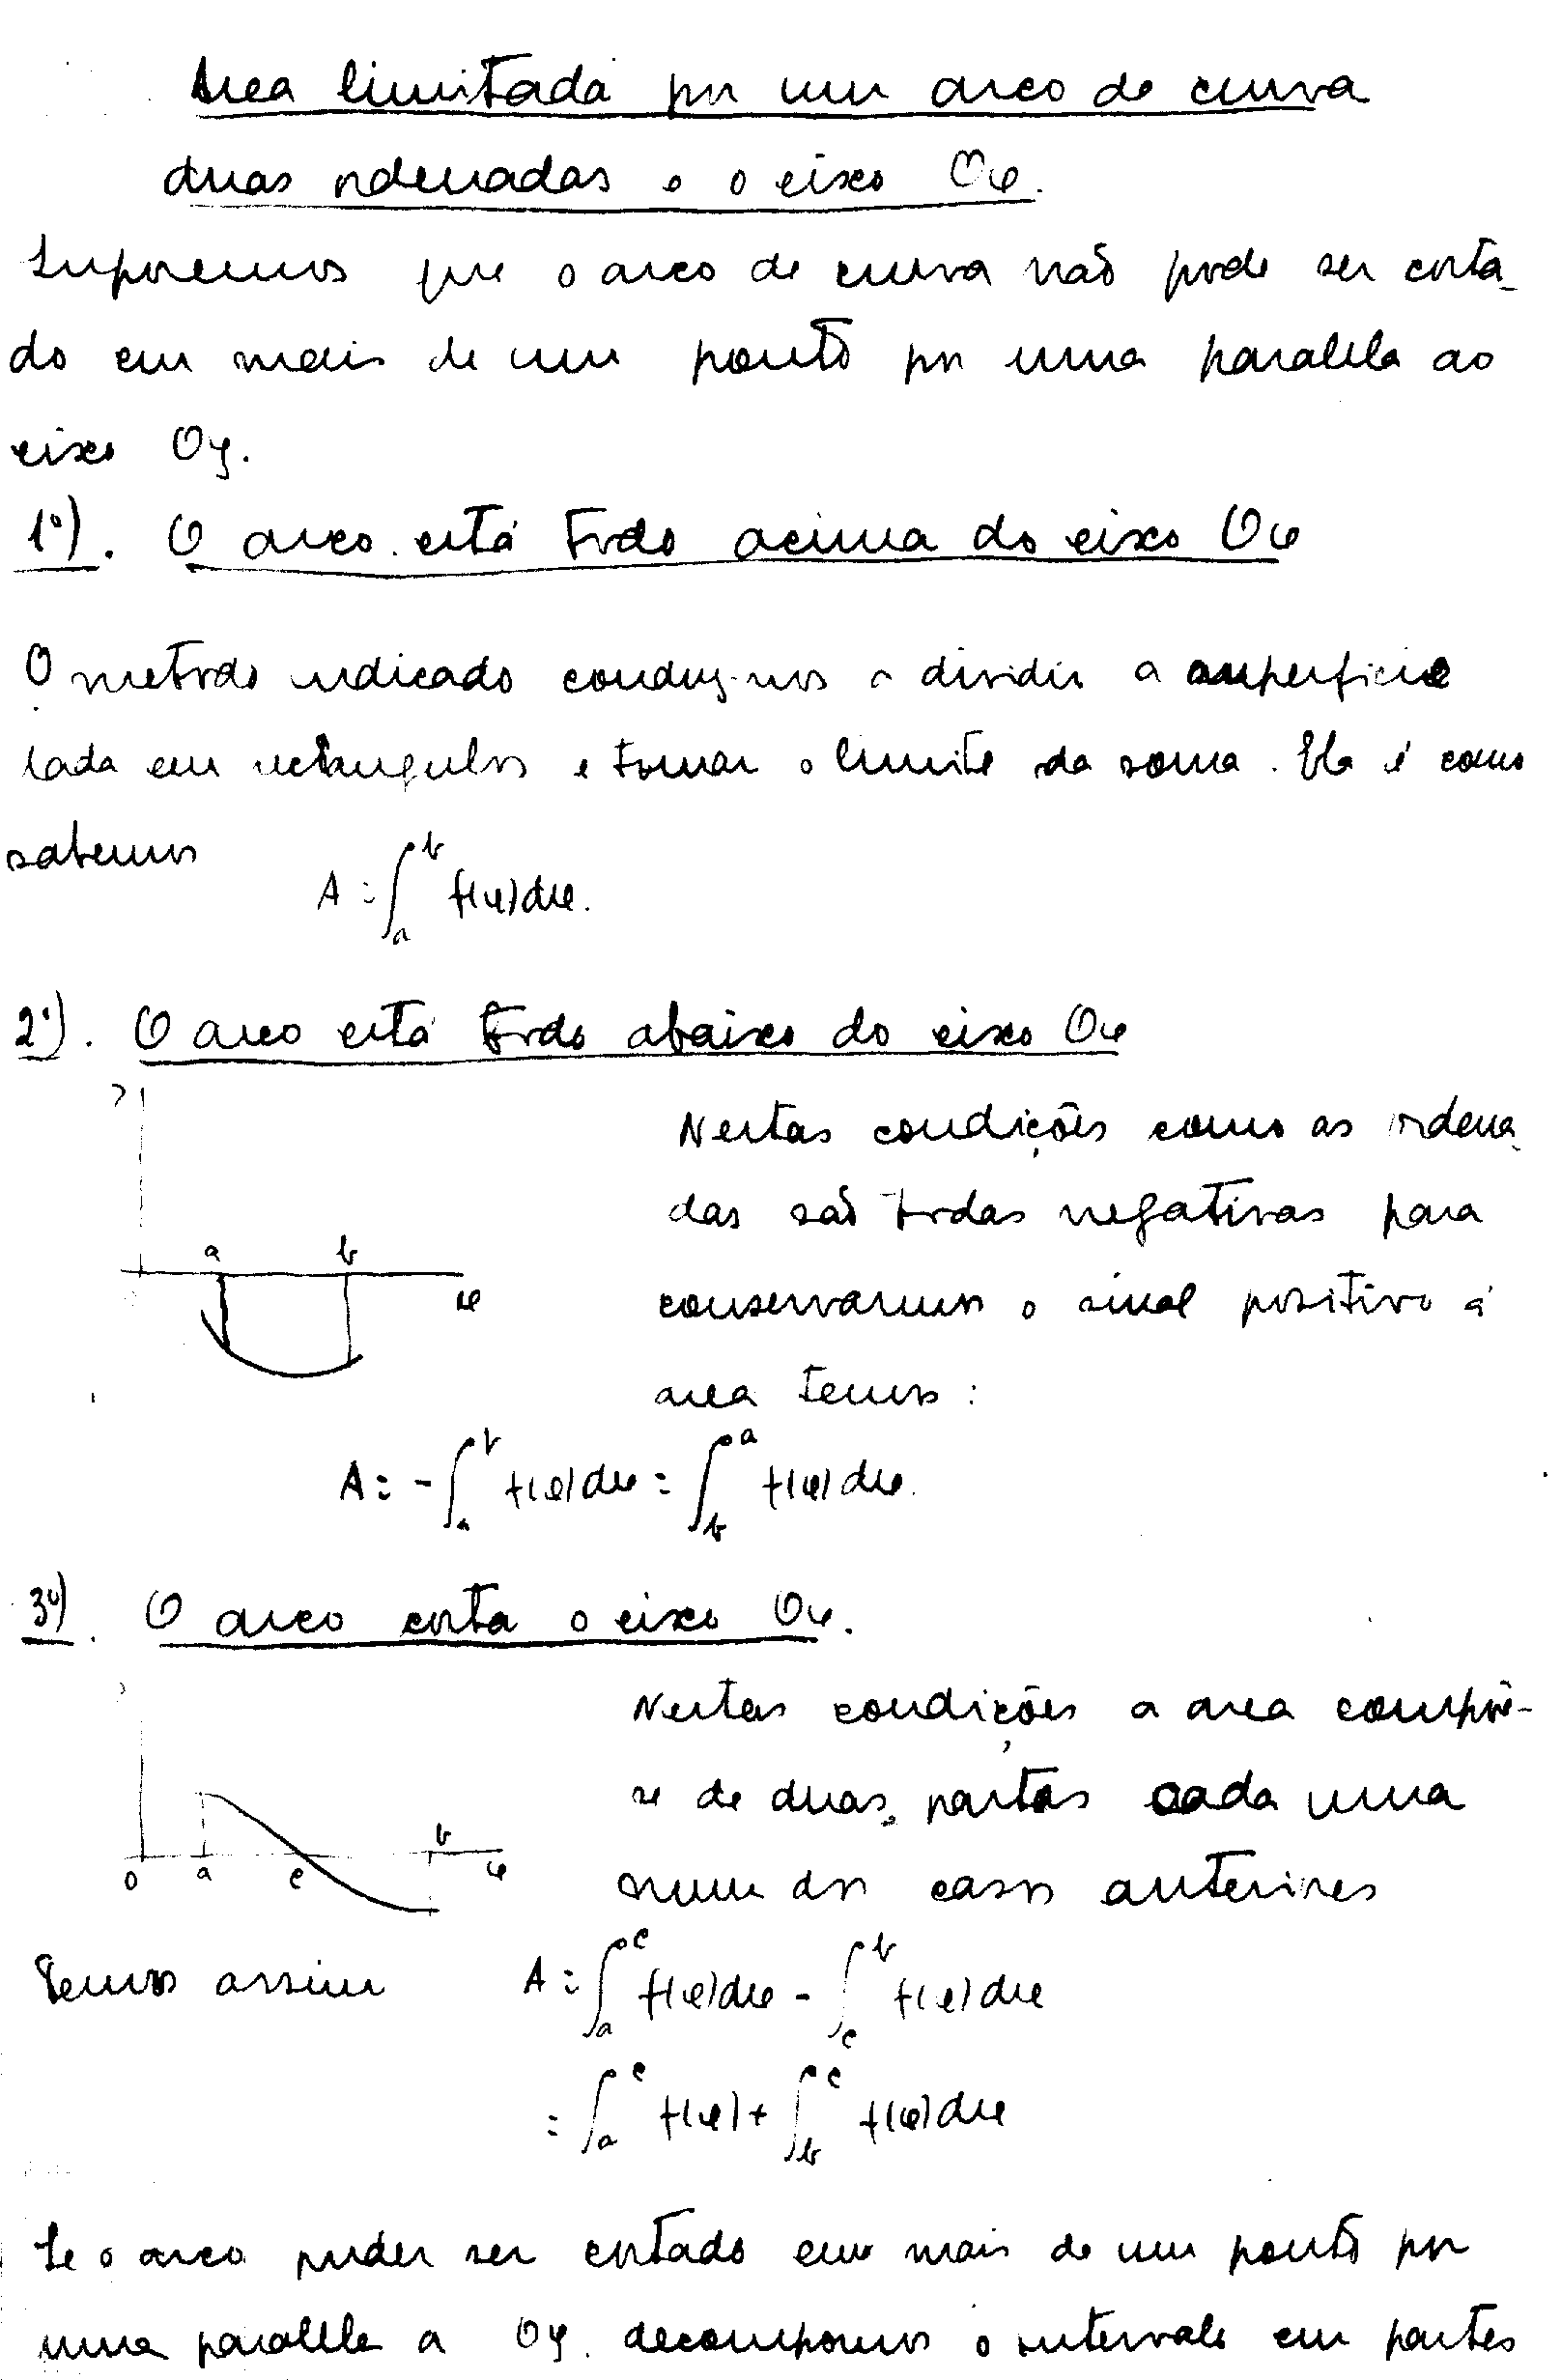 Area limitada por um arco de curva
duas ordenadas e o eixo Ox.
Suporemos que o arco de curva não pode ser corta-
do em mais de um ponto por uma paralela ao
eixo Oy.
1º). O arco está todo acima do eixo Ox
O metodo indicado conduz-nos a dividir a superficie
dada em rectangulos e tomar o limite da soma. Ela é como
sabemos
A = ∫_a^b f(x)dx.
2º). O arco está todo abaixo do eixo Ox
y
a b
x
Nestas condições como as ordena-
das são todas negativas para
conservarmos o sinal positivo á
area temos :
A = - ∫_a^b f(x)dx = ∫_b^a f(x)dx.
3º). O arco corta o eixo Ox.
O a c b x
Nestas condições a area compõe-
se de duas partes cada uma
num dos casos anteriores
Temos assim A = ∫_a^c f(x)dx - ∫_c^b f(x)dx
= ∫_a^c f(x) + ∫_b^c f(x)dx
Se o arco puder ser cortado em mais de um ponto por
uma paralela a Oy. decompomos o intervalo em partes